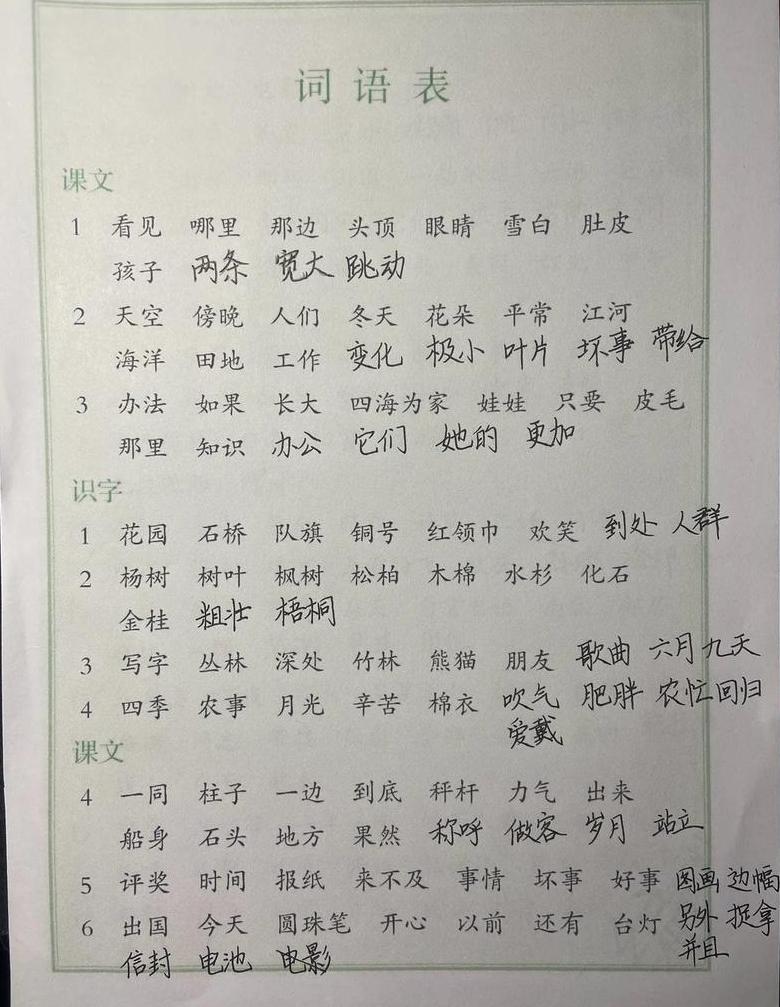 词语表
课文
1 看见 哪里 那边 头顶 眼睛 雪白 肚皮
孩子 两条 宽大 跳动
2 天空 傍晚 人们 冬天 花朵 平常 江河
海洋 田地 工作 变化 极小 叶片 坏事 带给
3 办法 如果 长大 四海为家 娃娃 只要 皮毛
那里 知识 办公 它们 她的 更加
识字
1 花园 石桥 队旗 铜号 红领巾 欢笑 到处 人群
2 杨树 树叶 枫树 松柏 木棉 水杉 化石
金桂 粗壮 梧桐
3 写字 丛林 深处 竹林 熊猫 朋友 歌曲 六月 九天
4 四季 农事 月光 辛苦 棉衣 吹气 肥胖 农忙 回归
爱戴
课文
4 一同 柱子 一边 到底 秤杆 力气 出来
船身 石头 地方 果然 称呼 做客 岁月 站立
5 评奖 时间 报纸 来不及 事情 坏事 好事 图画 边幅
6 出国 今天 圆珠笔 开心 以前 还有 台灯 另外 捉拿
信封 电池 电影 并且